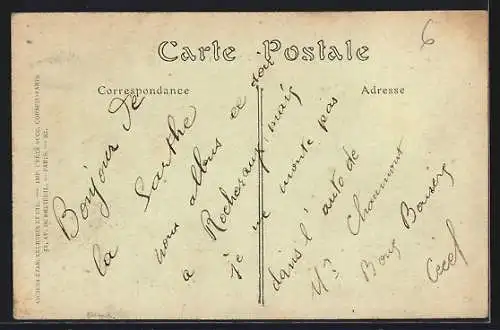 Carte Postale
Correspondance
Adresse
6
Bonjour de
la Sarthe
nous allons ce soir
a Rocheraux mais
je ne monte pas
dans l'auto de
Mr Charmont
Bons Baisers
Cécel